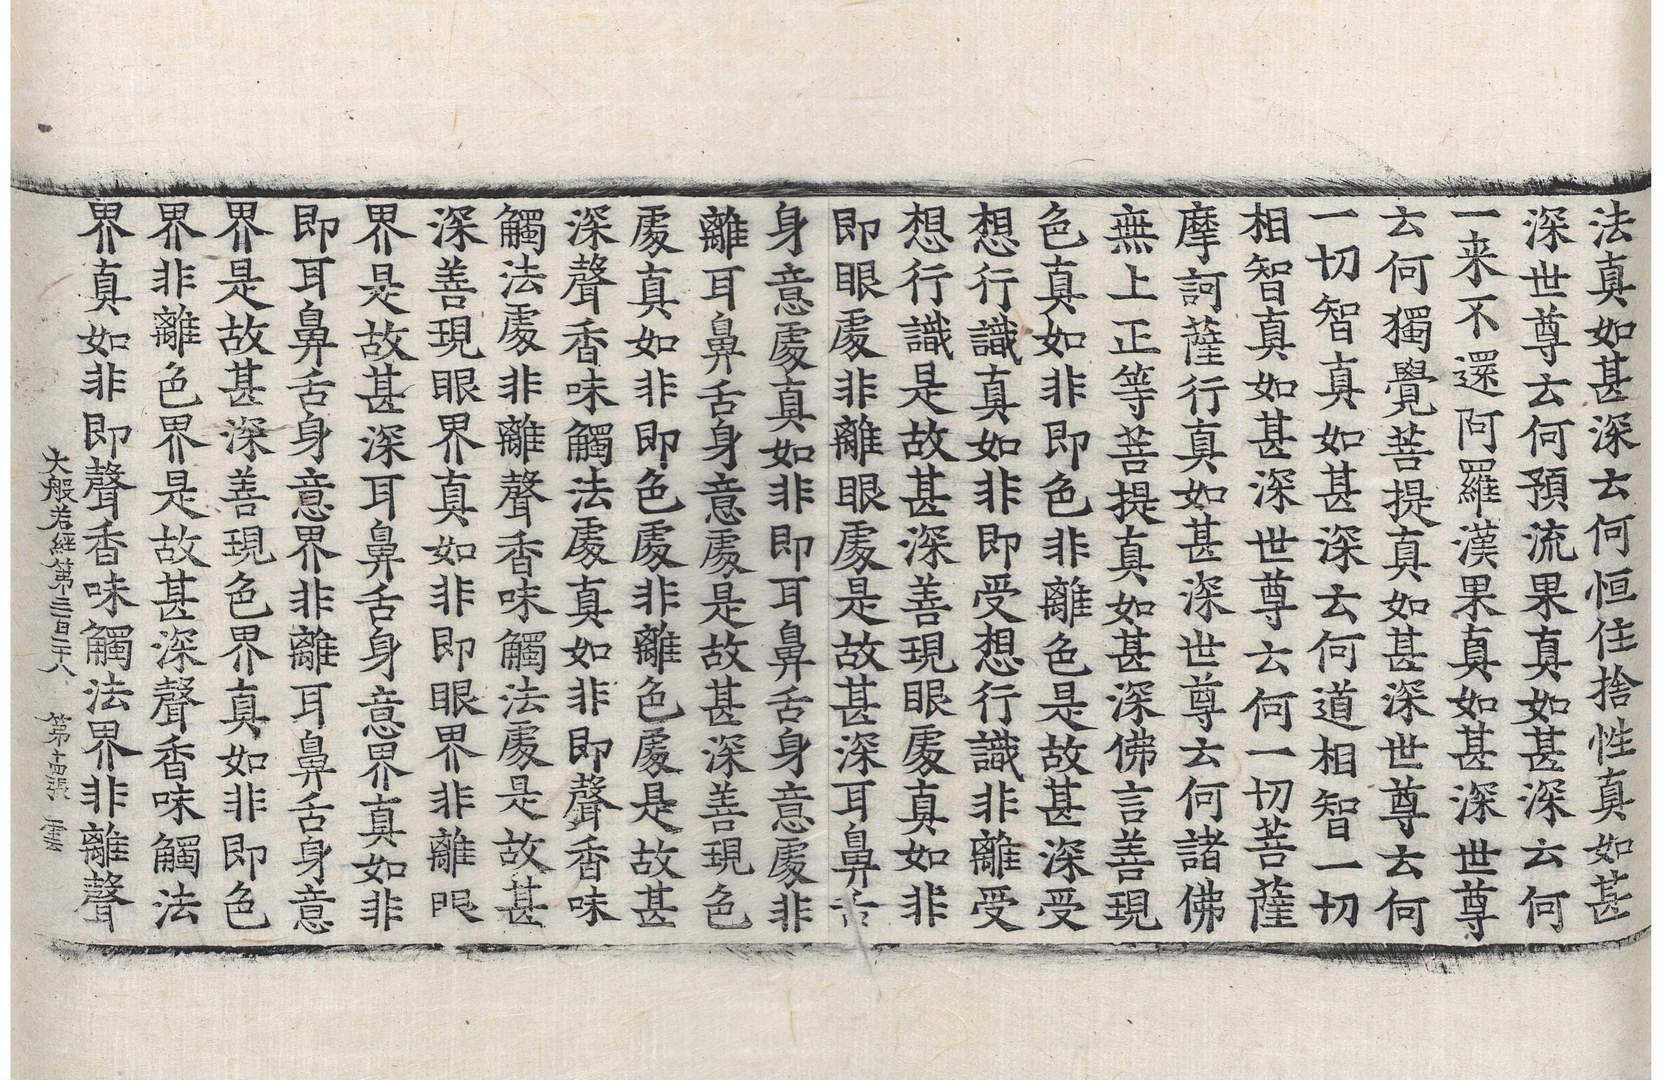 法真如甚深云何恒住捨性真如甚
深世尊云何預流果真如甚深云何
一来不還阿羅漢果真如甚深世尊
云何獨覺菩提真如甚深世尊云何
一切智真如甚深云何道相智一切
相智真如甚深世尊云何一切菩薩
摩訶薩行真如甚深世尊云何諸佛
無上正等菩提真如甚深佛言善現
色真如非即色非離色是故甚深受
想行識真如非即受想行識非離受
想行識是故甚深善現眼處真如非
即眼處非離眼處是故甚深耳鼻舌
身意處真如非即耳鼻舌身意處非
離耳鼻舌身意處是故甚深善現色
處真如非即色處非離色處是故甚
深聲香味觸法處真如非即聲香味
觸法處非離聲香味觸法處是故甚
深善現眼界真如非即眼界非離眼
界是故甚深耳鼻舌身意界真如非
即耳鼻舌身意界非離耳鼻舌身意
界是故甚深善現色界真如非即色
界非離色界是故甚深聲香味觸法
界真如非即聲香味觸法界非離聲
大般若經第三百二十八 第十四張 雲